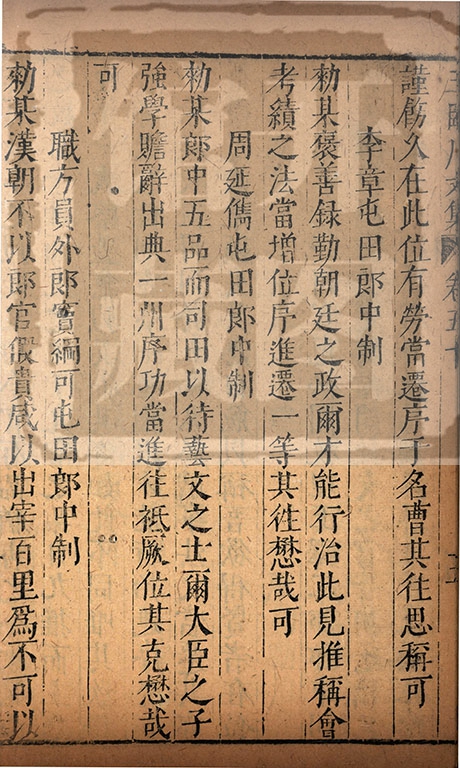 王臨川文集 卷五十
謹飭久在此位有勞當遷序于名曹其往思稱可
李章屯田郎中制
勑某褒善録勤朝廷之政爾才能行治此見推稱會
考績之法當增位序進遷一等其徃懋哉可
周延儁屯田郎中制
勑某郎中五品而司田以待藝文之士爾大臣之子
強學贍辭出典一州序功當進往祗厥位其克懋哉
可
職方員外郎竇綱可屯田郎中制
勑某漢朝不以郎官假貴咸以出宰百里爲不可以